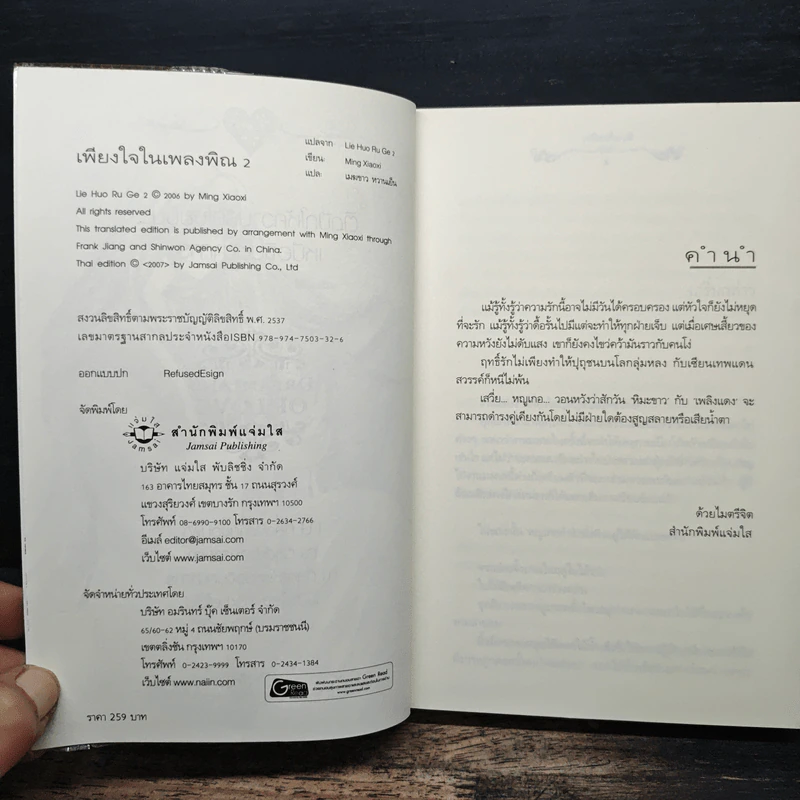 เพียงใจในเพลงพิณ 2
แปลจาก Lie Huo Ru Ge 2
เขียน: Ming Xiaoxi
แปล: เมฆขาว หวานเย็น
Lie Huo Ru Ge 2 © 2006 by Ming Xiaoxi
All rights reserved
This translated edition is published by arrangement with Ming Xiaoxi through
Frank Jiang and Shinwon Agency Co. in China.
Thai edition © <2007> by Jamsai Publishing Co., Ltd
สงวนลิขสิทธิ์ตามพระราชบัญญัติลิขสิทธิ์ พ.ศ. 2537
เลขมาตรฐานสากลประจำหนังสือISBN 978-974-7503-32-6
ออกแบบปก RefusedEsign
จัดพิมพ์โดย
แจ่มใส
Jamsai
สำนักพิมพ์แจ่มใส
Jamsai Publishing
บริษัท แจ่มใส พับลิชชิ่ง จำกัด
163 อาคารไทยสมุทร ชั้น 17 ถนนสุรวงศ์
แขวงสุริยวงศ์ เขตบางรัก กรุงเทพฯ 10500
โทรศัพท์ 08-6990-9100 โทรสาร 0-2634-2766
อีเมล์ editor@jamsai.com
เว็บไซต์ www.jamsai.com
จัดจำหน่ายทั่วประเทศโดย
บริษัท อมรินทร์ บุ๊ค เซ็นเตอร์ จำกัด
65/60-62 หมู่ 4 ถนนชัยพฤกษ์ (บรมราชชนนี)
เขตตลิ่งชัน กรุงเทพฯ 10170
โทรศัพท์ 0-2423-9999 โทรสาร 0-2434-1384
เว็บไซต์ www.naiin.com
Green
Read
www.greenread.com
ราคา 259 บาท
คำนำ
แม้รู้ทั้งรู้ว่าความรักนี้อาจไม่มีวันได้ครอบครอง แต่หัวใจก็ยังไม่หยุด
ที่จะรัก แม้รู้ทั้งรู้ว่าดื้อรั้นไปมีแต่จะทำให้ทุกฝ่ายเจ็บ แต่เมื่อเศษเสี้ยวของ
ความหวังยังไม่ดับแสง เขาก็ยังคงไขว่คว้ามันราวกับคนโง่
ฤทธิ์รักไม่เพียงทำให้ปุถุชนบนโลกลุ่มหลง กับเซียนเทพแดน
สวรรค์ก็หนีไม่พ้น
เสวี่ย... หญูเกอ... วอนหวังว่าสักวัน 'หิมะขาว' กับ 'เพลิงแดง' จะ
สามารถดำรงคู่เคียงกันโดยไม่มีฝ่ายใดต้องสูญสลายหรือเสียน้ำตา
ด้วยไมตรีจิต
สำนักพิมพ์แจ่มใส